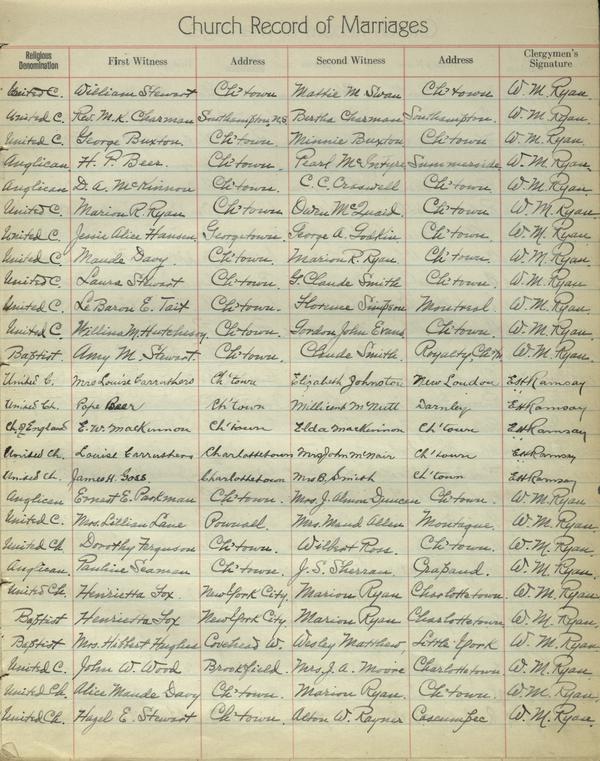 Church Record of Marriages
Religious Denomination First Witness Address Second Witness Address Clergymen's Signature
United C. William Stewart Ch'town Mattie M. Swan Ch'town W. M. Ryan.
United C. Rev. M. K. Charman Southampton, N.S. Bertha Charman Southampton. W. M. Ryan.
United C. George Buxton Ch'town. Minnie Buxton Ch'town. W. M. Ryan.
Anglican H. P. Beer. Ch'town. Pearl McIntyre Summerside W. M. Ryan.
Anglican D. A. McKinnon Ch'town. C. C. Croswell Ch'town. W. M. Ryan.
United C. Marion R. Ryan Ch'town Owen McQuaid. Ch'town. W. M. Ryan.
United C. Jessie Alice Hansen Georgetown George A. Godkin Ch'town. W. M. Ryan.
United C. Maude Davy Ch'town. Marion R. Ryan Ch'town. W. M. Ryan.
United C. Laura Stewart Ch'town. G. Claude Smith Ch'town. W. M. Ryan.
United C. LeBaron E. Tait Ch'town. Florence Simpson Montreal W. M. Ryan.
United C. William M. Hutcheson Ch'town. Gordon John Evans Ch'town W. M. Ryan.
Baptist. Amy M. Stewart Ch'town. Claude Smith. Royalty, W. M. Ryan.
United C. Mrs Louise Carruthers Ch'town Elizabeth Johnston New London EH Ramsay
United Ch. Pope Beer Ch'town Millicent McNutt Darnley EH Ramsay
Ch. of England E. W. MacKinnon Ch'town Elda MacKinnon Ch'town EH Ramsay
United Ch. Louise Carruthers Charlottetown Mrs John McNair Ch'town EH Ramsay
United Ch. James H. Goss Charlottetown Mrs B. Smith Ch'town EH Ramsay
Anglican Ernest E. Parkman Ch'town. Mrs. J. Almon Duncan Ch'town. W. M. Ryan
United C. Mrs. Lillian Lane Pownall. Mrs. Maud Allen Montague. W. M. Ryan.
United Ch. Dorothy Ferguson Ch'town. Wilbert Ross. Ch'town. W. M. Ryan.
Anglican. Pauline Seaman Ch'town. J. S. Sherran. Crapaud. W. M. Ryan.
United Ch. Henrietta Fox. New York City. Marion Ryan Charlottetown W. M. Ryan.
Baptist Henrietta Fox New York City. Marion Ryan Charlottetown W. M. Ryan.
Baptist. Mrs. Hibbert Covehead W. Wesley Matthew, Little York W. M. Ryan.
United C. John W. Wood Brookfield. Mrs. J. A. Moore Charlottetown W. M. Ryan.
United Ch. Alice Maude Davy Ch'town. Marion Ryan. Ch'town. W. M. Ryan.
United Ch. Hazel E. Stewart Ch'town. Alton W. Rayner Cascumpec W. M. Ryan.